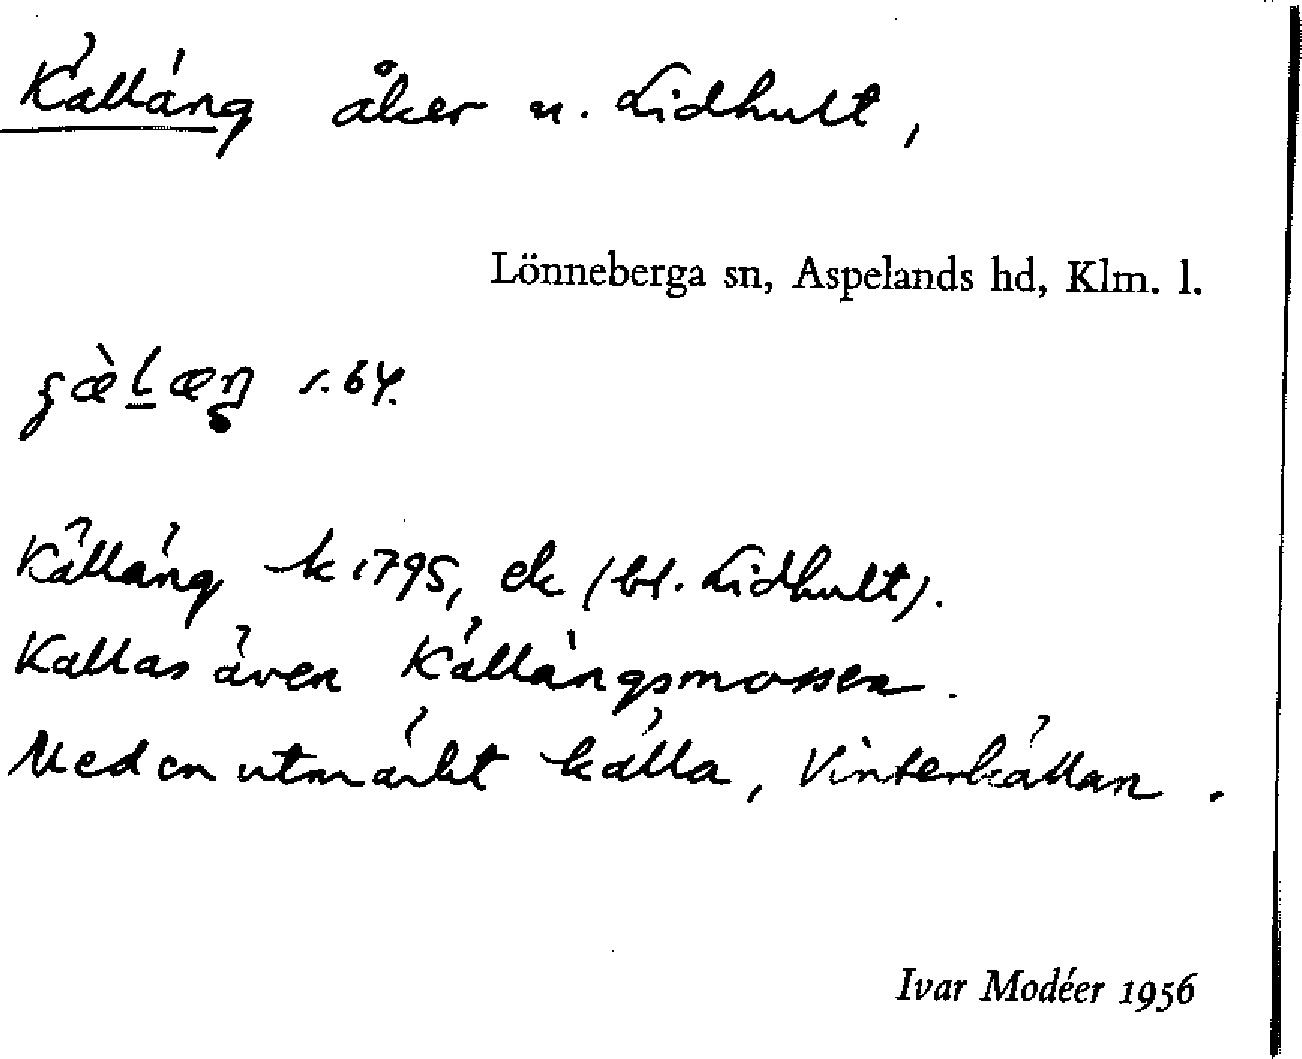 Källäng åker u. Lidhult,
Lönneberga sn, Aspelands hd, Klm. l.
s. 64.
Källäng k 1795, ek (bl. Lidhult).
Kallas även Källängsmossen.
Med en utmärkt källa, Vinterkällan.
Ivar Modéer 1956